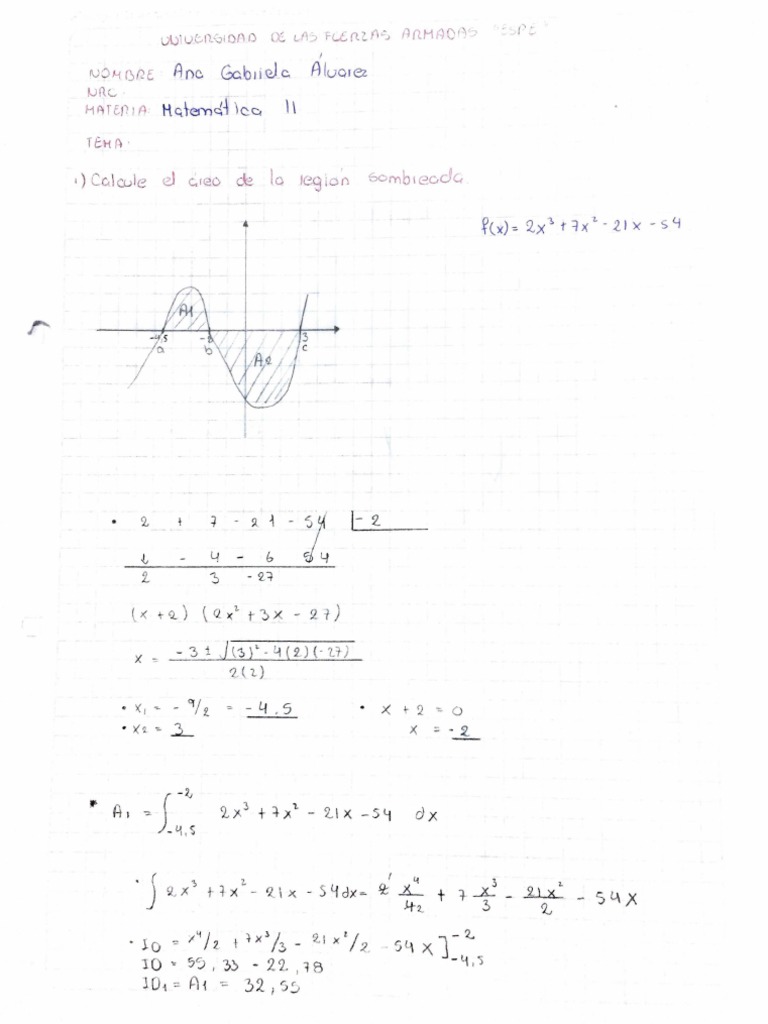 UNIVERSIDAD DE LAS FUERZAS ARMADAS "ESPE"
NOMBRE: Ana Gabriela Álvarez
NRC:
MATERIA: Matemática II
TEMA:
1) Calcule el área de la región sombreada.
f(x) = 2x³ + 7x² - 21x - 54
A1
-4,5 -2 3
a b c
A2
• 2 + 7 - 21 - 54 |-2
- 4 - 6 54
2 3 -27
(x + 2) (2x² + 3x - 27)
x = -3 ± √(3)² - 4(2)(-27) / 2(2)
• x₁ = - 9/2 = -4,5 • x + 2 = 0
• x₂ = 3 x = -2
• A₁ = ∫₋₄,₅⁻² 2x³ + 7x² - 21x - 54 dx
• ∫ 2x³ + 7x² - 21x - 54dx = 2¹ x⁴/4₂ + 7 x³/3 - 21x²/2 - 54x
• ID = x⁴/2 + 7x³/3 - 21x²/2 - 54x ]₋₄,₅⁻²
ID = 55,33 - 22,78
ID₁ = A1 = 32,55